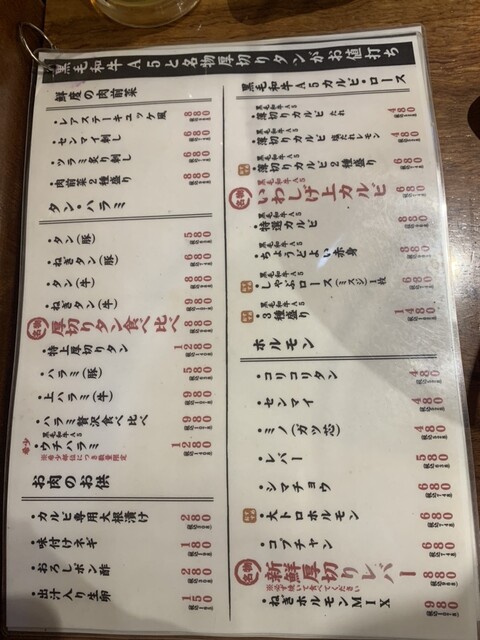 黒毛和牛A5と名物厚切りタンがお値打ち
鮮度の肉前菜
・レアステーキユッケ風 880
・センマイ刺し 680
・ツラミ炙り刺し 680
・肉前菜2種盛り 880
タン・ハラミ
・タン(豚) 580
・ねぎタン(豚) 680
・タン(牛) 880
・ねぎタン(牛) 980
名物 厚切りタン食べ比べ 880
・特上厚切りタン 1280
・ハラミ(豚) 580
・上ハラミ(牛) 980
・ハラミ贅沢食べ比べ 980
黒毛和牛A5
希少・ウチハラミ 1280
※希少部位につき数量限定
お肉のお供
・カルビ専用大根漬け 280
・味付けネギ 180
・おろしポン酢 280
・出汁入り生卵 150
黒毛和牛A5カルビ・ロース
黒毛和牛A5
・薄切りカルビ たれ 480
黒毛和牛A5
・薄切りカルビ 塩だれレモン 480
黒毛和牛A5
・薄切りカルビ2種盛り 680
黒毛和牛A5
名物 いわしげ上カルビ 680
黒毛和牛A5
・特選カルビ 880
黒毛和牛A5
・ちょうどよい赤身 880
黒毛和牛A5
・しゃぶロース(ミスジ)1枚 680
黒毛和牛A5
・3種盛り 1480
ホルモン
・コリコリタン 480
・センマイ 480
・ミノ(ガツ芯) 480
・レバー 580
・シマチョウ 680
・大トロホルモン 680
・コプチャン 680
名物 新鮮厚切りレバー 880
※必ず焼いて食べてください
・ねぎホルモンMIX 980